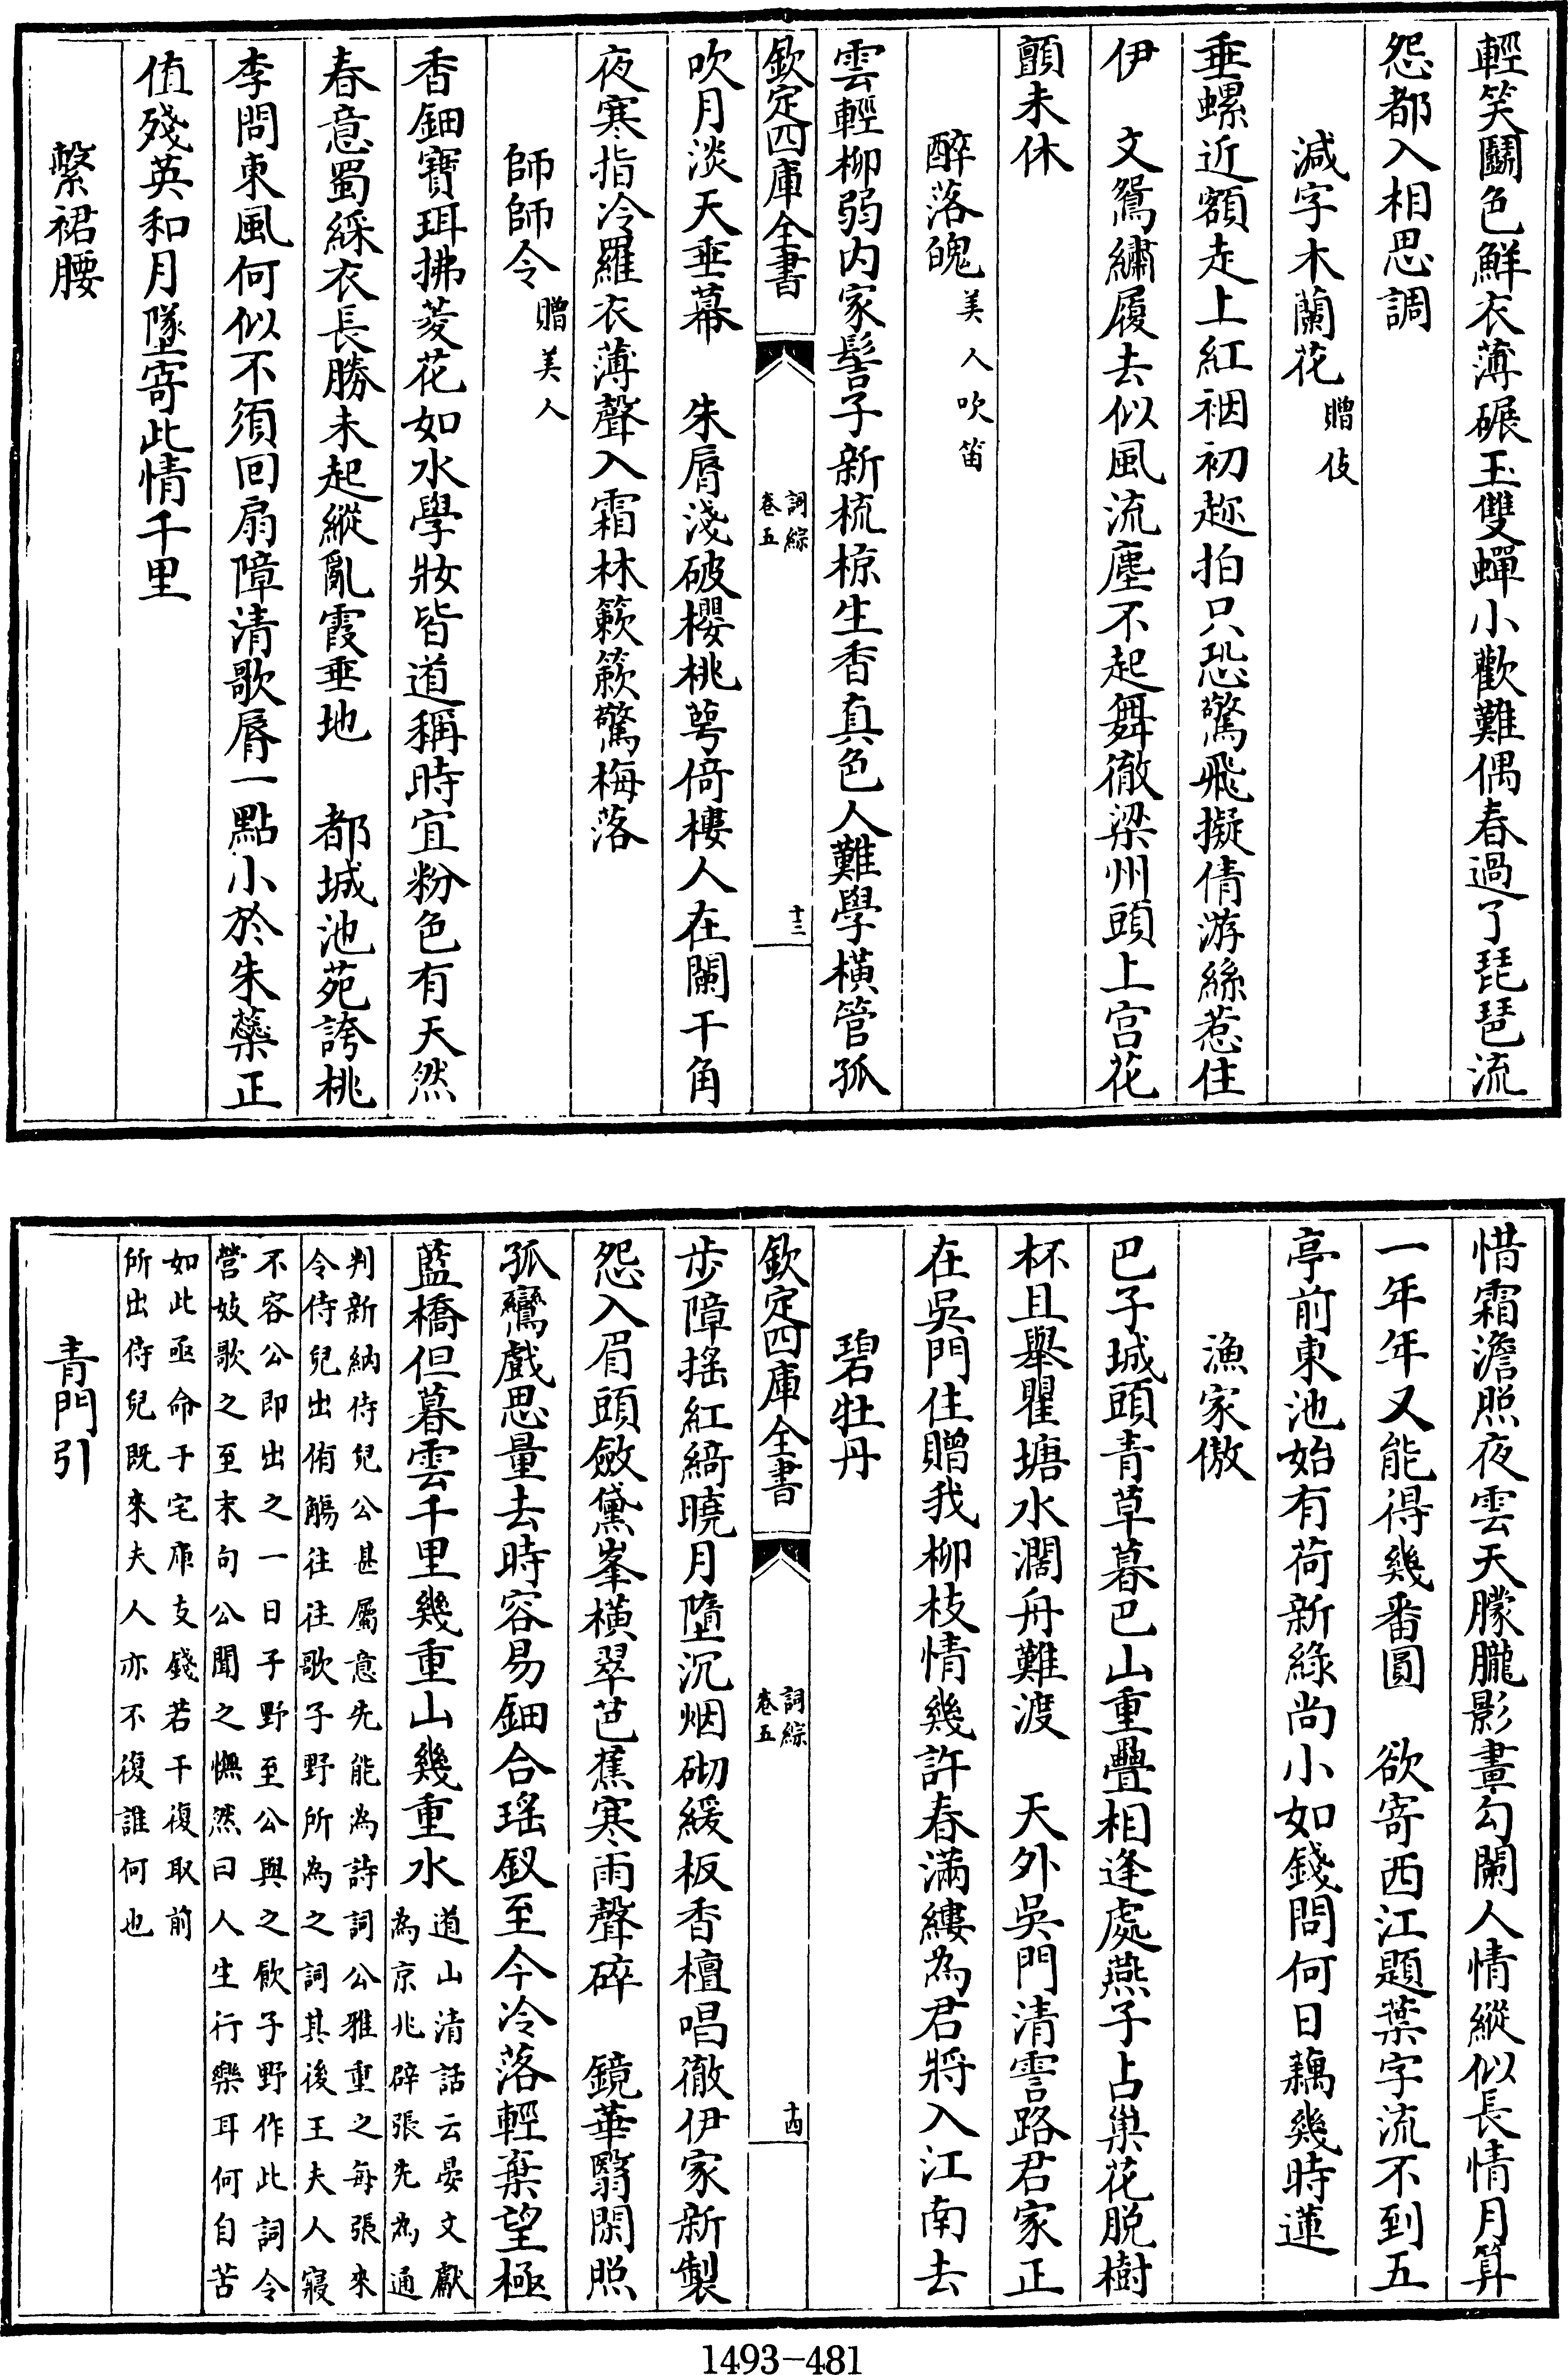 輕笑鬭色鮮衣薄碾玉雙蟬小歡難偶春過了琵琶流
怨都入相思調
減字木蘭花 贈伎
垂螺近額走上紅裀初趂拍只恐驚飛擬倩游絲惹住
伊 文鴛繡履去似風流塵不起舞徹梁州頭上宫花
顫未休
醉落魄 美人吹笛
雲輕柳弱内家髻子新梳掠生香真色人難學橫管孤
欽定四庫全書 詞綜 卷五 十三
吹月淡天垂幕 朱脣淺破櫻桃萼倚樓人在闌干角
夜寒指冷羅衣薄聲入霜林簌簌驚梅落
師師令 贈美人
香鈿寶珥拂菱花如水學妝皆道稱時宜粉色有天然
春意蜀綵衣長勝未起縱亂霞垂地 都城池苑誇桃
李問東風何似不須回扇障清歌脣一點小於朱蘂正
值殘英和月墜寄此情千里
繫裙腰
惜霜澹照夜雲天朦朧影畫勾闌人情縱似長情月算
一年年又能得幾番圓 欲寄西江題葉字流不到五
亭前東池始有荷新綠尚小如錢問何日藕幾時蓮
漁家傲
巴子城頭青草暮巴山重疊相逢處燕子占巢花脱樹
杯且舉瞿塘水濶舟難渡 天外吳門清霅路君家正
在吳門住贈我柳枝情幾許春滿縷為君將入江南去
碧牡丹
欽定四庫全書 詞綜 卷五 十四
步障搖紅綺曉月墮沉烟砌緩板香檀唱徹伊家新製
怨入眉頭斂黛峯橫翠芭蕉寒雨聲碎 鏡華翳閑照
孤鸞戲思量去時容易鈿合瑤釵至今冷落輕棄望極
藍橋但暮雲千里幾重山幾重水 道山清話云晏文獻
為京兆辟張先為通
判新納侍兒公甚屬意先能為詩詞公雅重之每張來
令侍兒出侑觴往往歌子野所為之詞其後王夫人寖
不容公即出之一日子野至公與之飲子野作此詞令
營妓歌之至末句公聞之憮然曰人生行樂耳何自苦
如此亟命于宅庫支錢若干復取前
所出侍兒既來夫人亦不復誰何也
青門引
1493-481